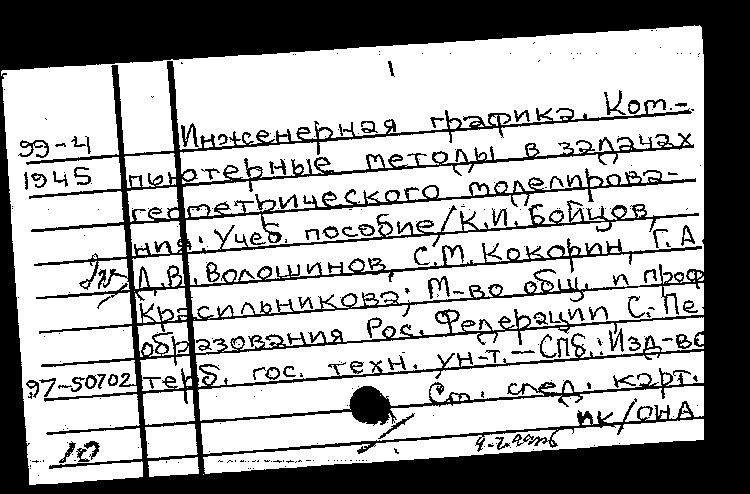 Инженерная графика. Ком-
99-4
пьютерные методы в задачах
1945
геометрического моделирова-
ния: Учеб. пособие/К.И. Бойцов,
Д.В. Волошинов, С.М. Кокорин, Г.А.
Красильникова; М-во общ. и проф
образования Рос. Федерации, С.-Пе-
терб. гос. техн. ун-т.—СПб.: Изд-во
97-50702
См. след. карт.
ПК/ОНА
10